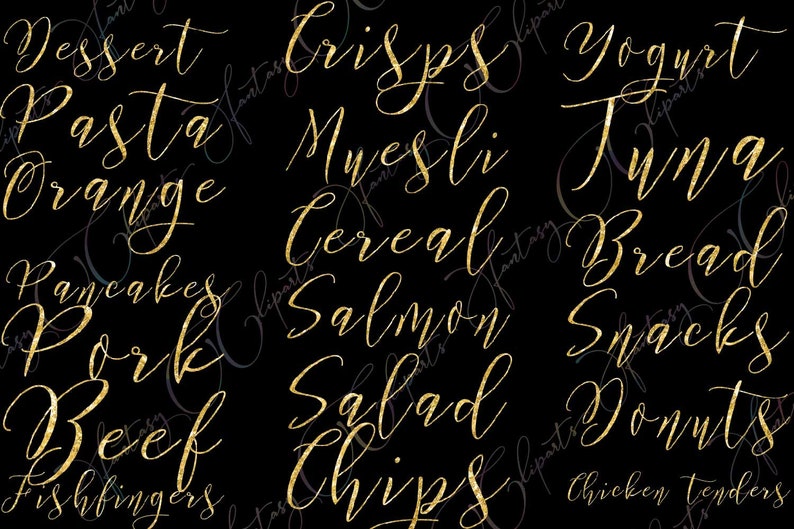 Dessert
Pasta
Orange
Pancakes
Pork
Beef
Fishfingers
Crisps
Muesli
Cereal
Salmon
Salad
Chips
Yogurt
Tuna
Bread
Snacks
Donuts
Chicken tenders